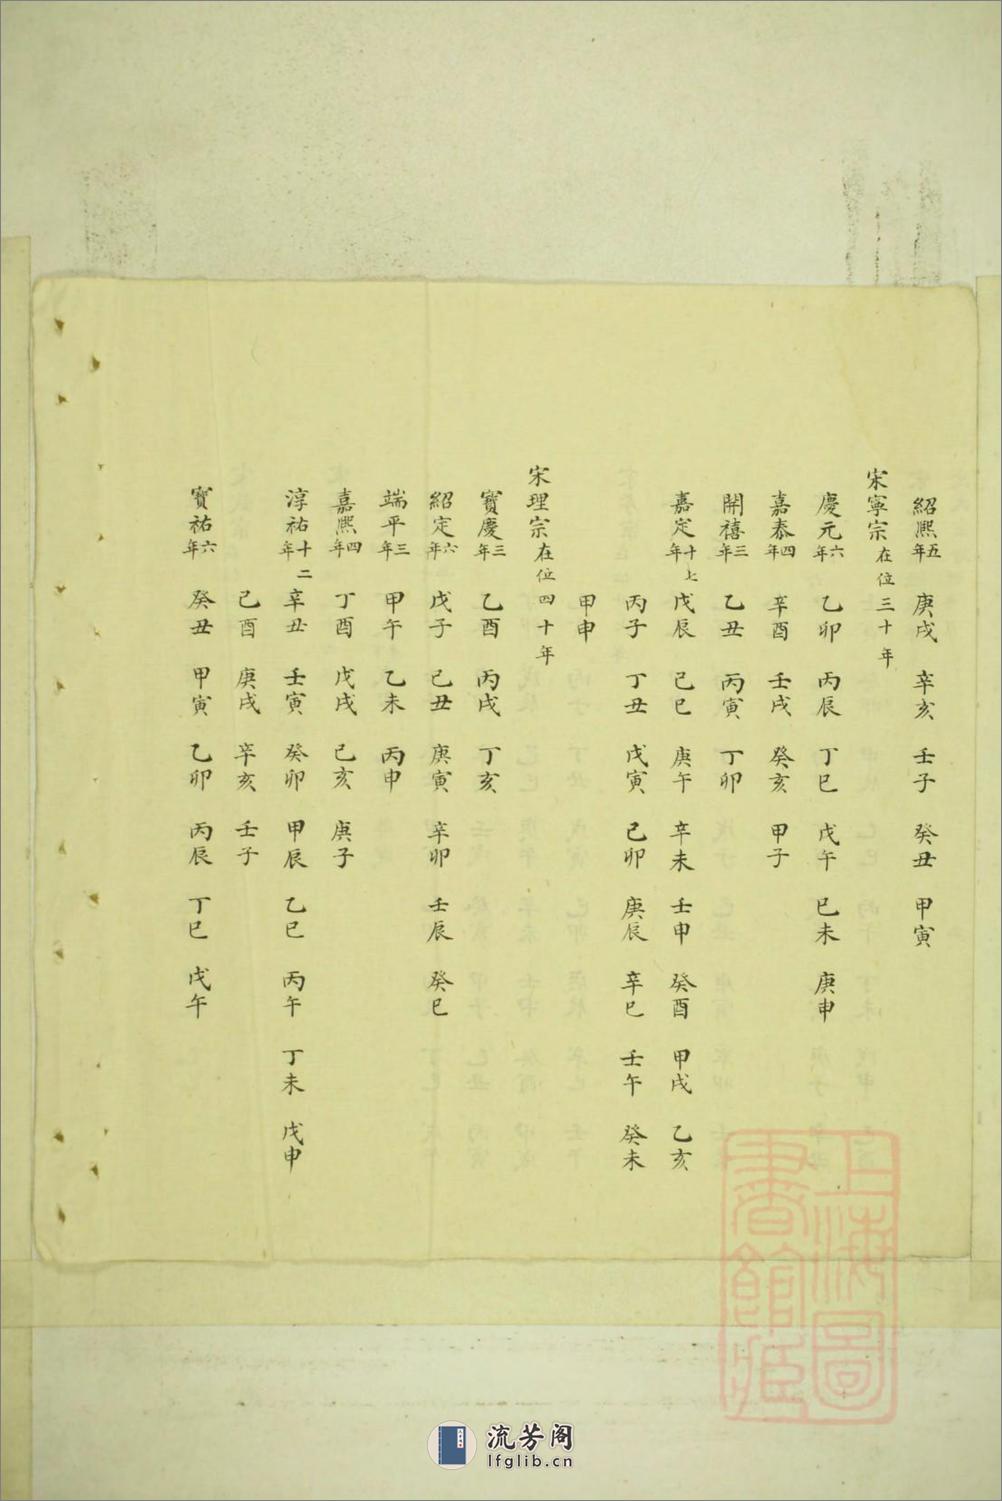 紹熙五年 庚戌 辛亥 壬子 癸丑 甲寅
宋寧宗在位三十年
慶元六年 乙卯 丙辰 丁巳 戊午 己未 庚申
嘉泰四年 辛酉 壬戌 癸亥 甲子
開禧三年 乙丑 丙寅 丁卯
嘉定十七年 戊辰 己巳 庚午 辛未 壬申 癸酉 甲戌 乙亥
丙子 丁丑 戊寅 己卯 庚辰 辛巳 壬午 癸未
甲申
宋理宗在位四十年
寶慶三年 乙酉 丙戌 丁亥
紹定六年 戊子 己丑 庚寅 辛卯 壬辰 癸巳
端平三年 甲午 乙未 丙申
嘉熙四年 丁酉 戊戌 己亥 庚子
淳祐十二年 辛丑 壬寅 癸卯 甲辰 乙巳 丙午 丁未 戊申
己酉 庚戌 辛亥 壬子
寶祐六年 癸丑 甲寅 乙卯 丙辰 丁巳 戊午
上海圖
書館藏
流芳阁
lfglib.cn